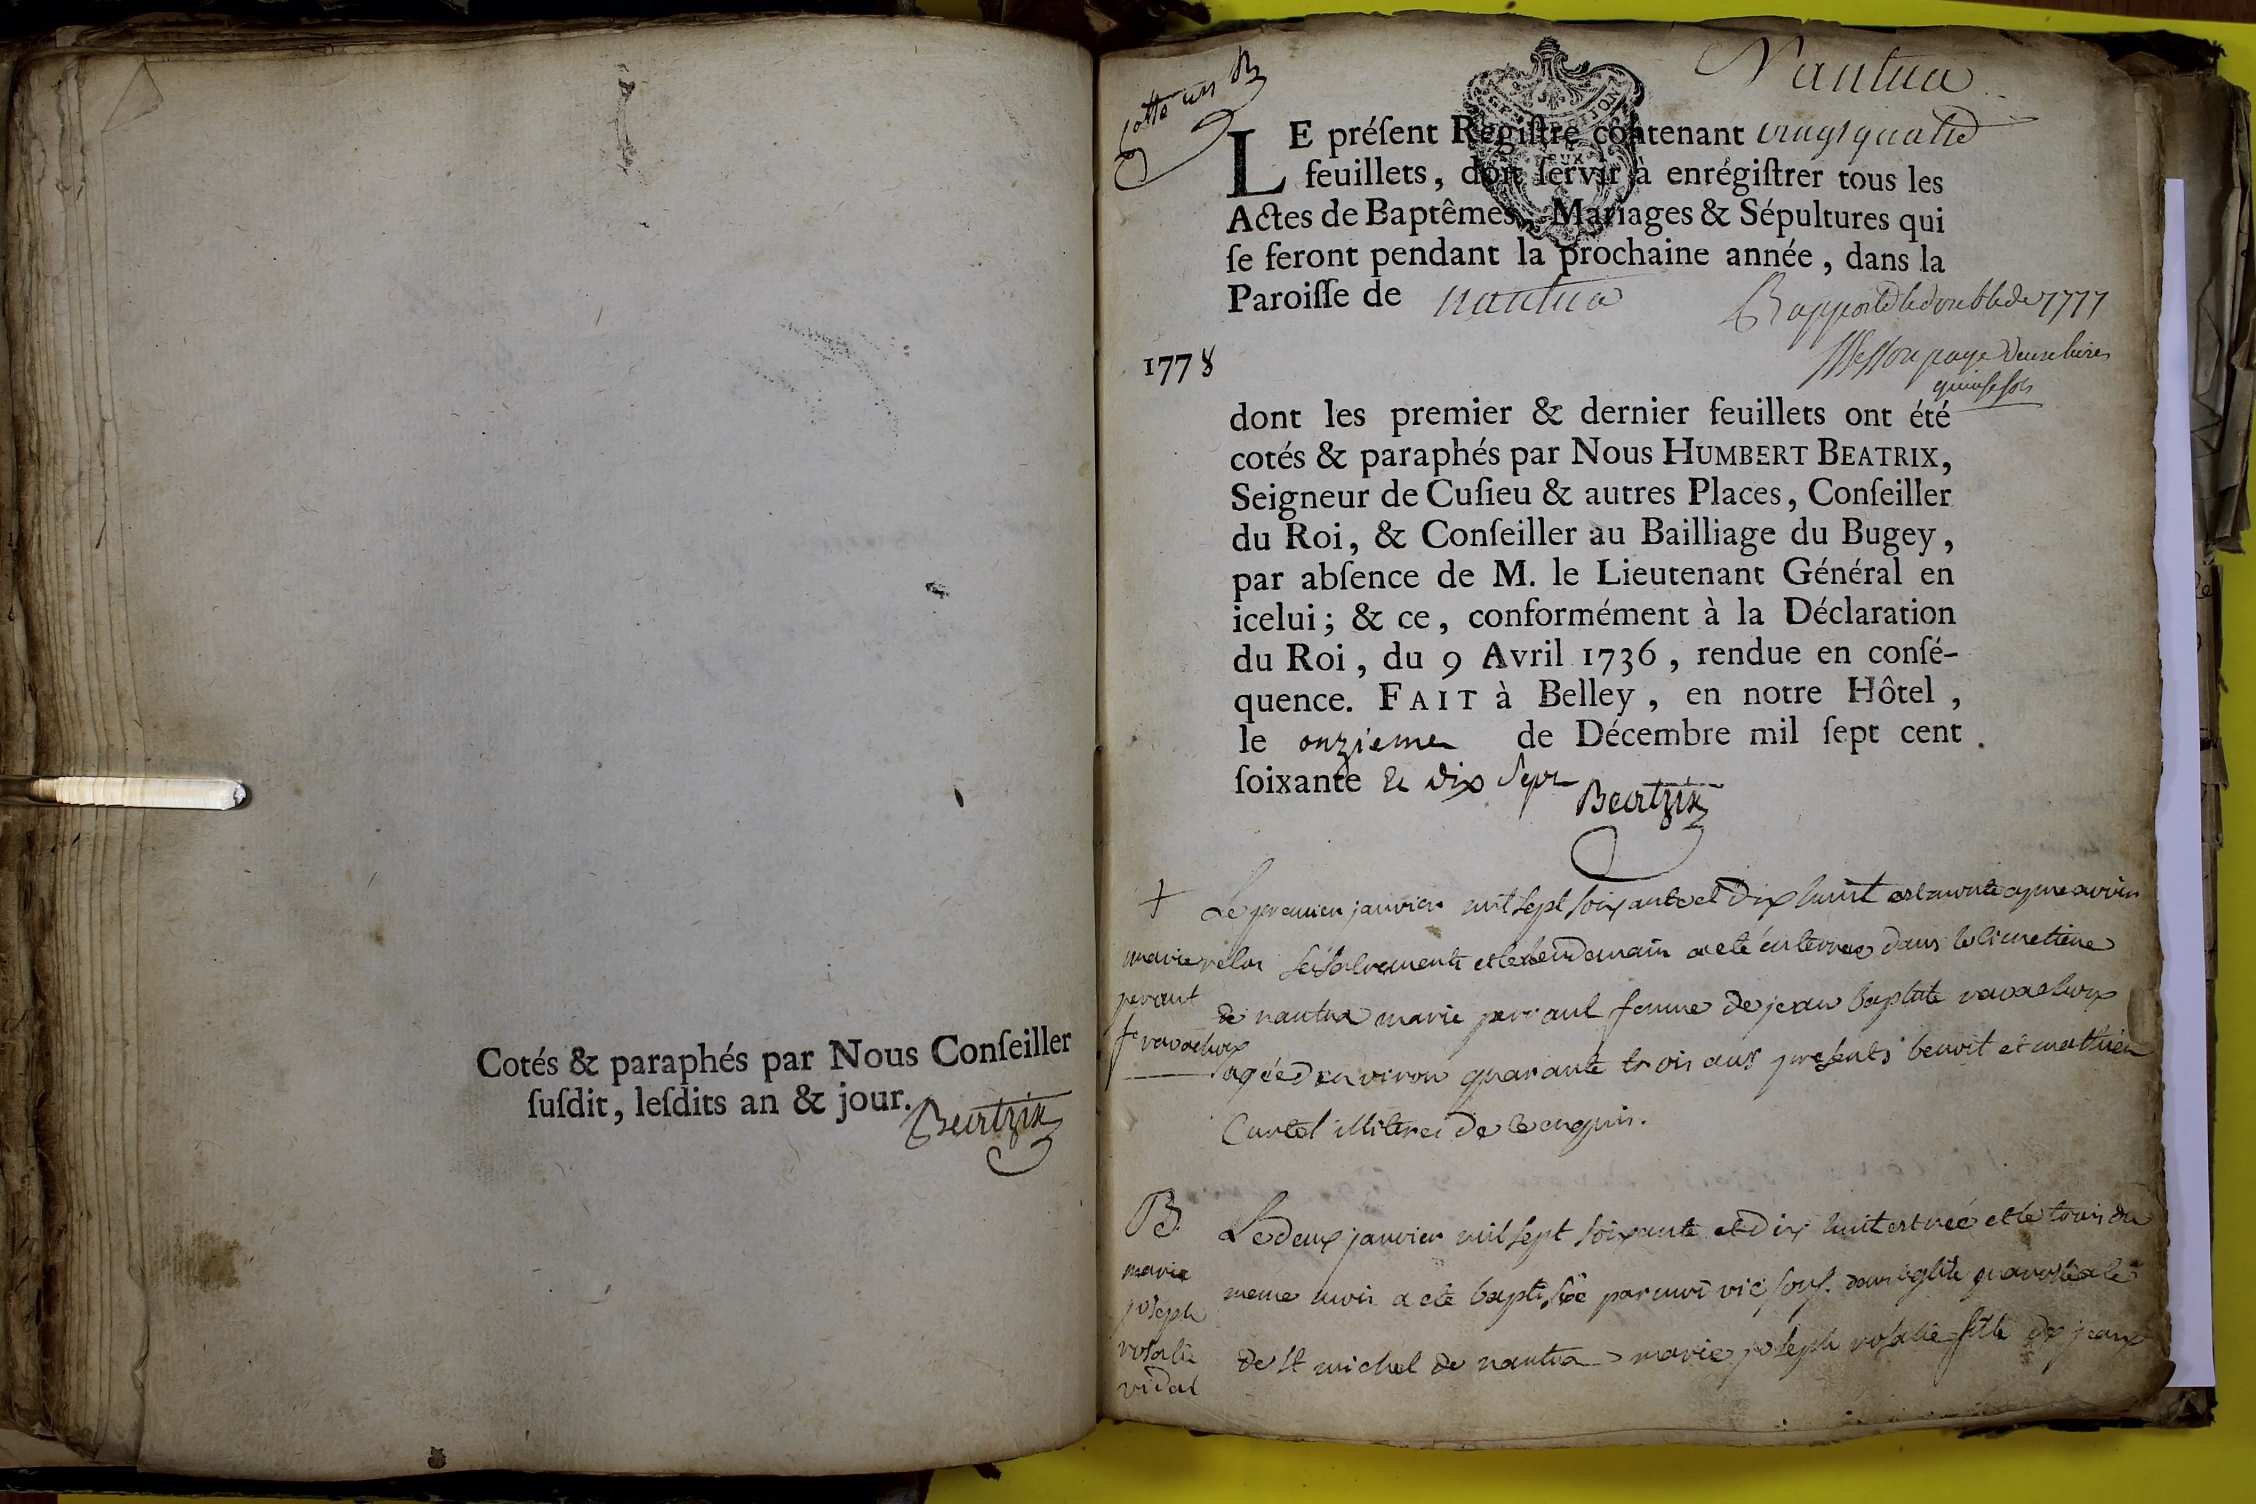 Cotés & paraphés par Nous Conſeiller
ſuſdit, leſdits an & jour.
Beatrix
Cotte un
Nantua
LE préſent Regiſtre contenant vingt quatre
feuillets, doit ſervir à enrégiſtrer tous les
Actes de Baptêmes, Mariages & Sépultures qui
ſe feront pendant la prochaine année, dans la
Paroiſſe de nantua
Rapporté le double de 1777
paye deux livres
quinse sols
1778
dont les premier & dernier feuillets ont été
cotés & paraphés par Nous HUMBERT BEATRIX,
Seigneur de Cuſieu & autres Places, Conſeiller
du Roi, & Conſeiller au Bailliage du Bugey,
par abſence de M. le Lieutenant Général en
icelui; & ce, conformément à la Déclaration
du Roi, du 9 Avril 1736, rendue en conſé-
quence. FAIT à Belley, en notre Hôtel,
le onzieme de Décembre mil ſept cent
ſoixante & dix sept
Beatrix
+
marie
perraut
fe ravachux
Le premier janvier mil sept soixante et dix huit est morte apres avoir
relu ses sacrements et le lendemain a eté enterree dans le cimetiere
de nantua marie perraut femme de jean baptiste ravachux
agée d'environ quarante trois ans presents benoit et mathieu
Curtet illiterés de ce enquis.
B.
marie
joseph
rosalie
vidal
Le deux janvier mil sept soixante et dix huit est née et le trois du
meme mois a eté baptisée par moi vic. sous. dans l'église paroissiale
de st michel de nantua marie joseph rosalie fille de jean